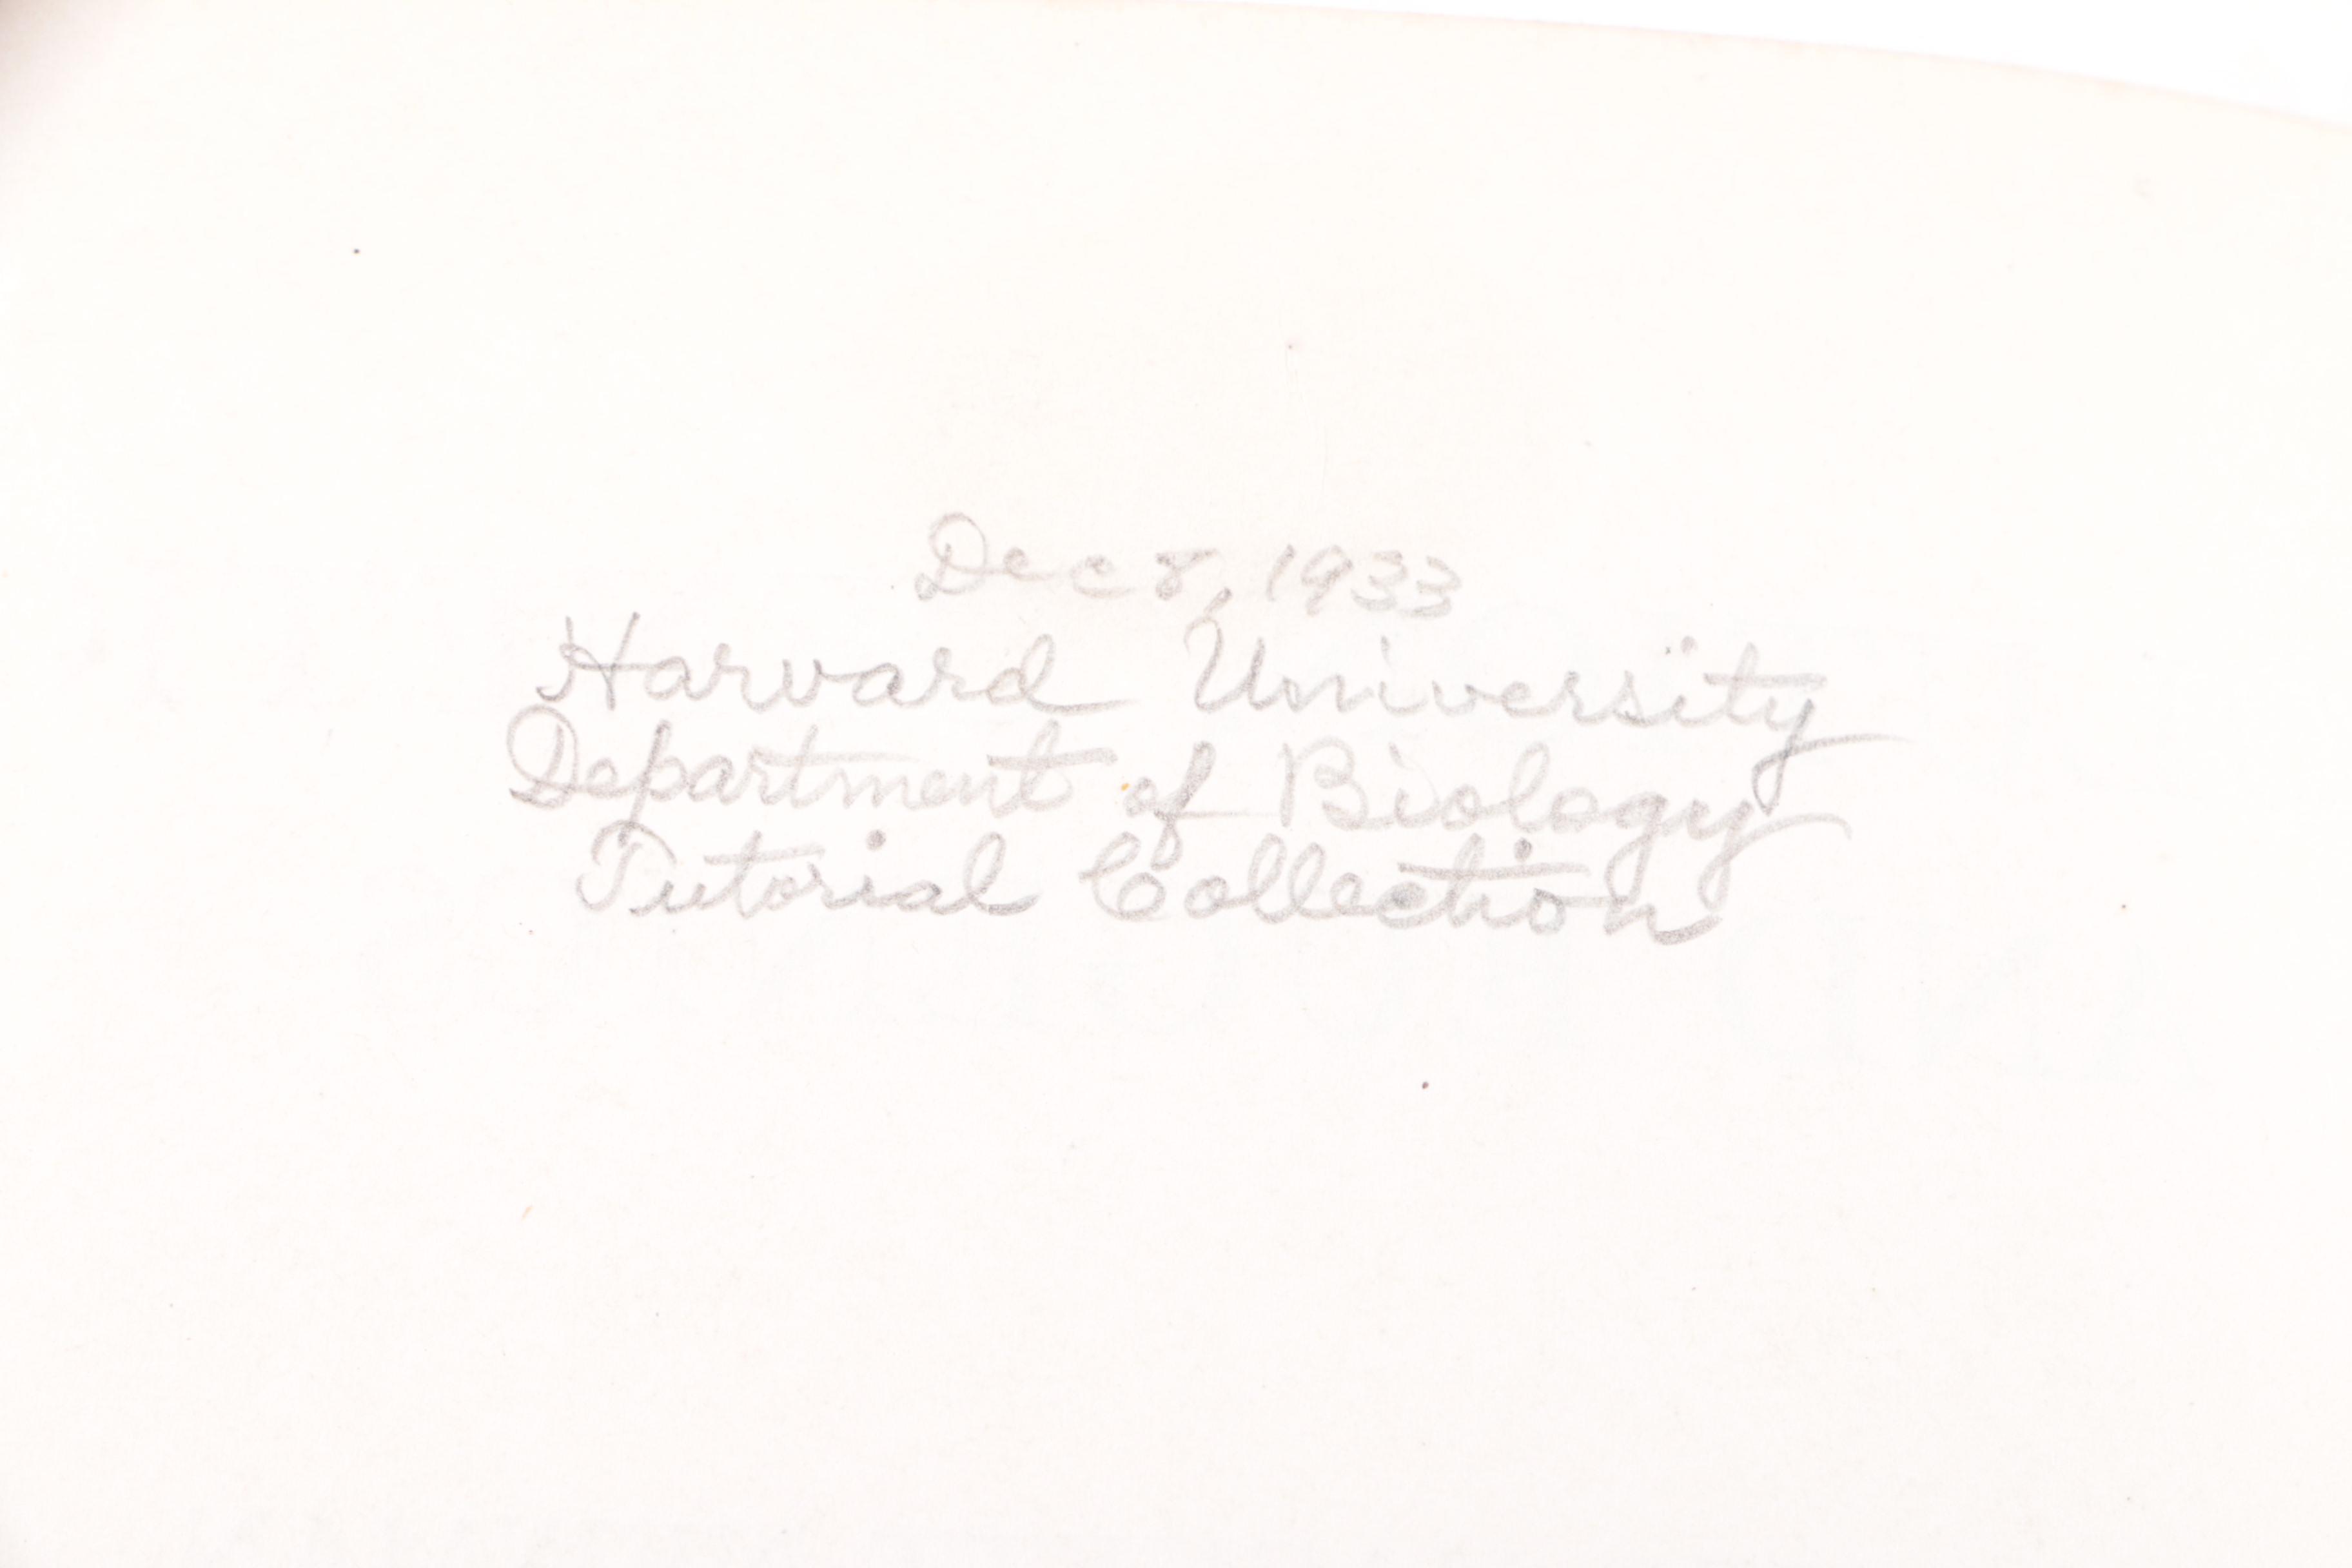 Dec 8, 1933
Harvard University
Department of Biology
Tutorial Collection